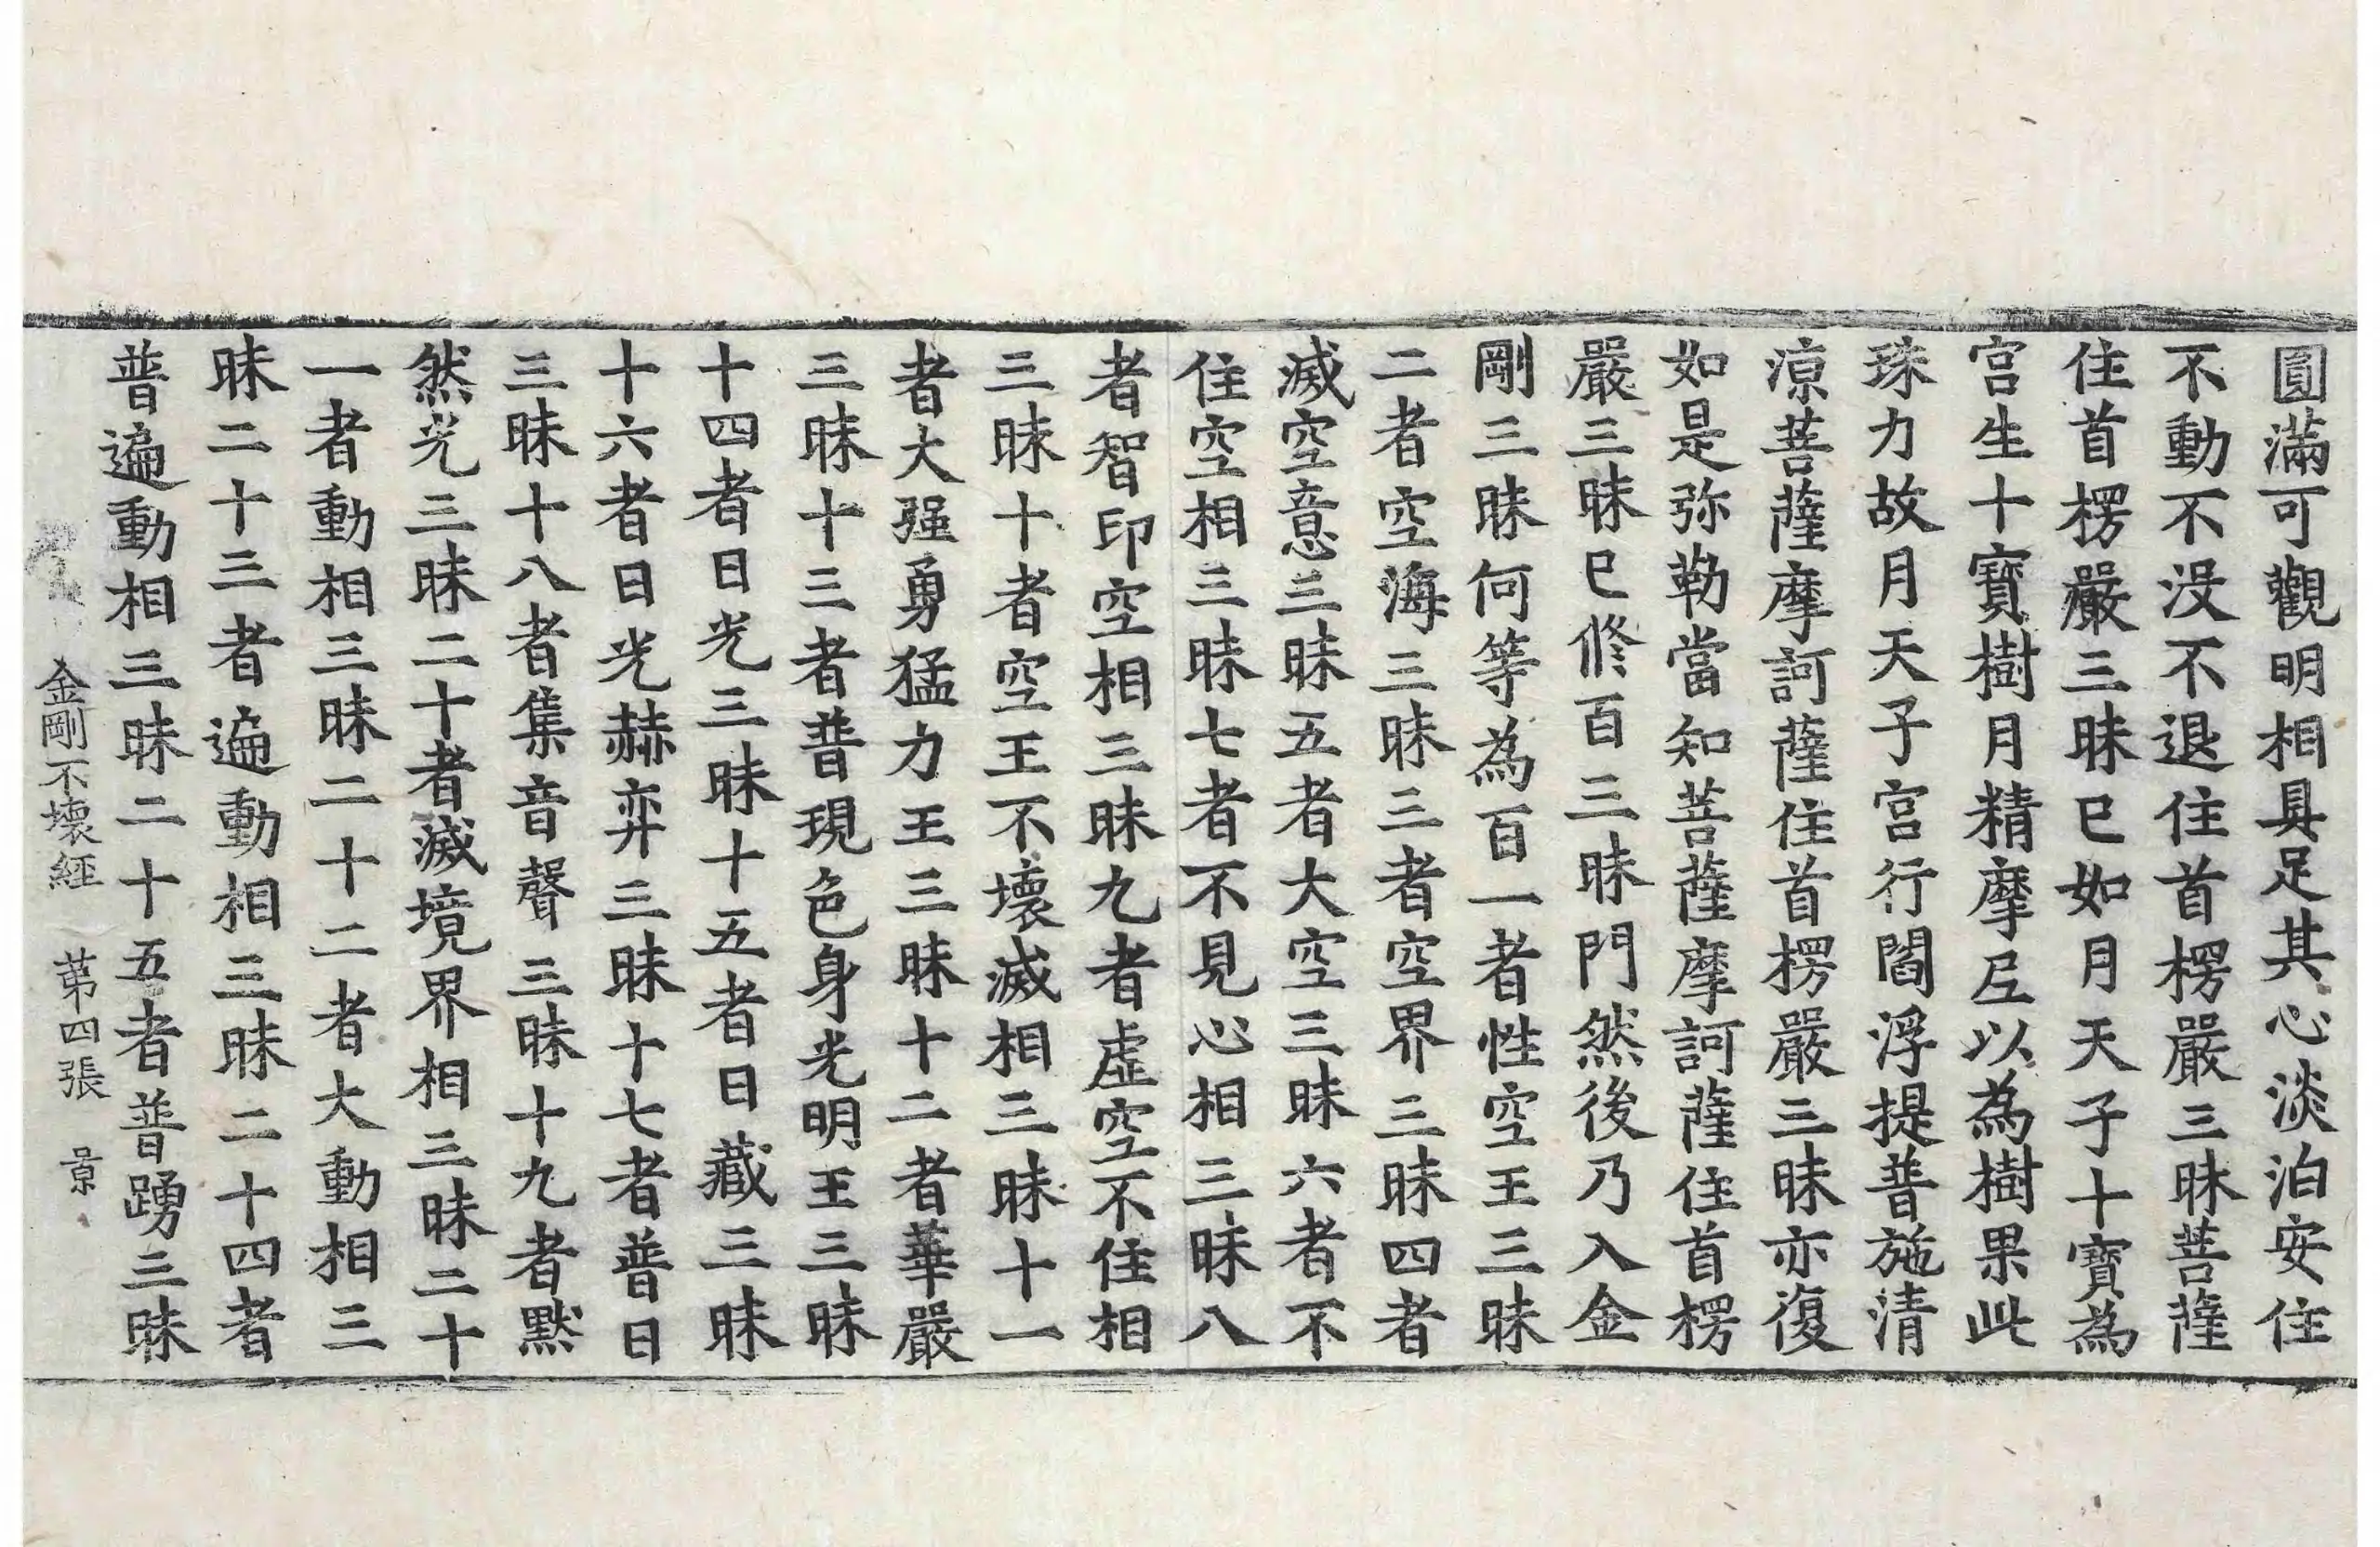 圓滿可觀明相具足其心淡泊安住
不動不没不退住首楞嚴三昧菩薩
住首楞嚴三昧已如月天子十寶為
宫生十寶樹月精摩尼以為樹果此
珠力故月天子宫行閻浮提普施清
涼菩薩摩訶薩住首楞嚴三昧亦復
如是弥勒當知菩薩摩訶薩住首楞
嚴三昧已修百三昧門然後乃入金
剛三昧何等為百一者性空王三昧
二者空海三昧三者空界三昧四者
滅空意三昧五者大空三昧六者不
住空相三昧七者不見心相三昧八
者智印空相三昧九者虚空不住相
三昧十者空王不壞滅相三昧十一
者大强勇猛力王三昧十二者華嚴
三昧十三者普現色身光明王三昧
十四者日光三昧十五者日藏三昧
十六者日光赫弈三昧十七者普日
三昧十八者集音聲三昧十九者黙
然光三昧二十者滅境界相三昧二十
一者動相三昧二十二者大動相三
昧二十三者遍動相三昧二十四者
普遍動相三昧二十五者普踴三昧
金剛不壞経 第四張 景